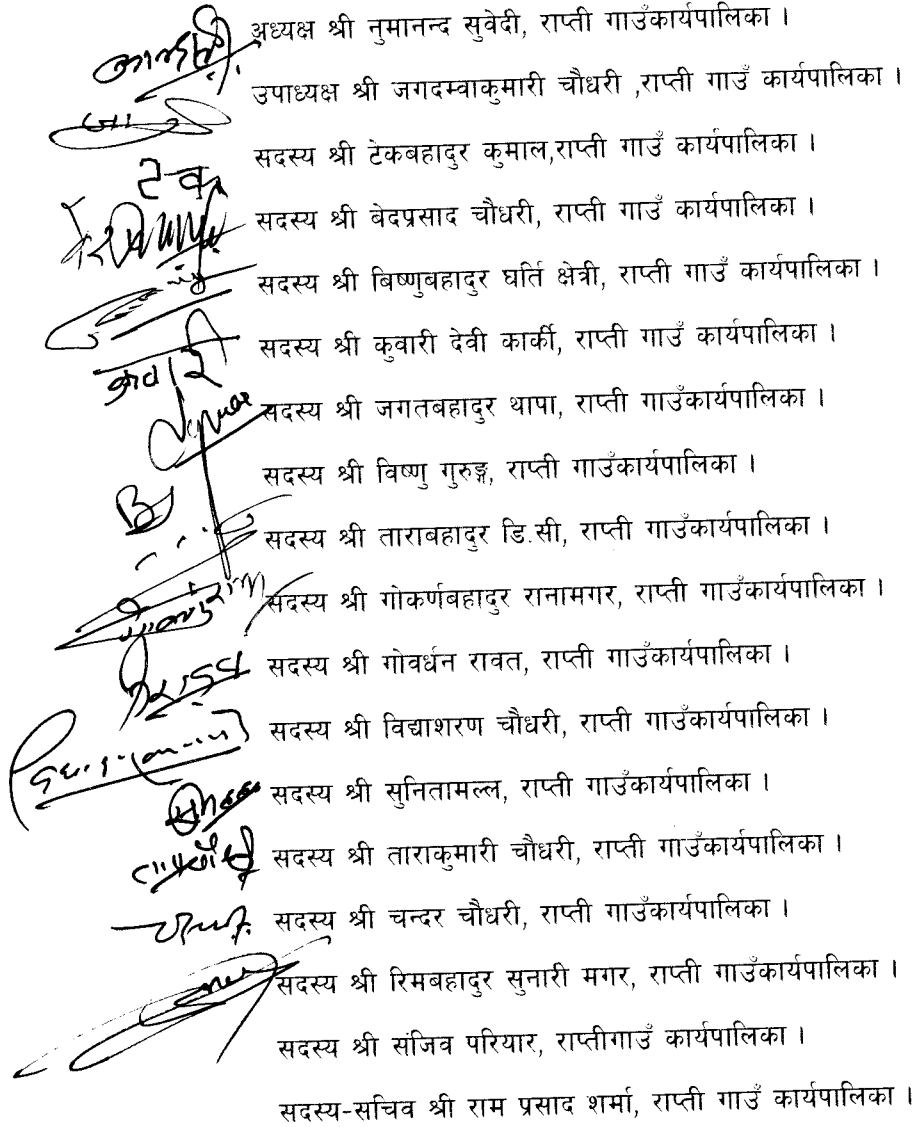 अध्यक्ष श्री नुमानन्द सुवेदी, राप्ती गाउँकार्यपालिका ।
उपाध्यक्ष श्री जगदम्वाकुमारी चौधरी ,राप्ती गाउँ कार्यपालिका ।
सदस्य श्री टेकबहादुर कुमाल,राप्ती गाउँ कार्यपालिका ।
टेक
सदस्य श्री बेदप्रसाद चौधरी, राप्ती गाउँ कार्यपालिका ।
सदस्य श्री बिष्णुबहादुर घर्ति क्षेत्री, राप्ती गाउँ कार्यपालिका ।
सदस्य श्री कुवारी देवी कार्की, राप्ती गाउँ कार्यपालिका ।
सदस्य श्री जगतबहादुर थापा, राप्ती गाउँकार्यपालिका ।
सदस्य श्री विष्णु गुरुङ्ग, राप्ती गाउँकार्यपालिका ।
सदस्य श्री ताराबहादुर डि.सी, राप्ती गाउँकार्यपालिका ।
सदस्य श्री गोकर्णबहादुर रानामगर, राप्ती गाउँकार्यपालिका ।
सदस्य श्री गोवर्धन रावत, राप्ती गाउँकार्यपालिका ।
सदस्य श्री विद्याशरण चौधरी, राप्ती गाउँकार्यपालिका ।
सदस्य श्री सुनितामल्ल, राप्ती गाउँकार्यपालिका ।
सदस्य श्री ताराकुमारी चौधरी, राप्ती गाउँकार्यपालिका ।
सदस्य श्री चन्दर चौधरी, राप्ती गाउँकार्यपालिका ।
सदस्य श्री रिमबहादुर सुनारी मगर, राप्ती गाउँकार्यपालिका ।
सदस्य श्री संजिव परियार, राप्तीगाउँ कार्यपालिका ।
सदस्य-सचिव श्री राम प्रसाद शर्मा, राप्ती गाउँ कार्यपालिका ।